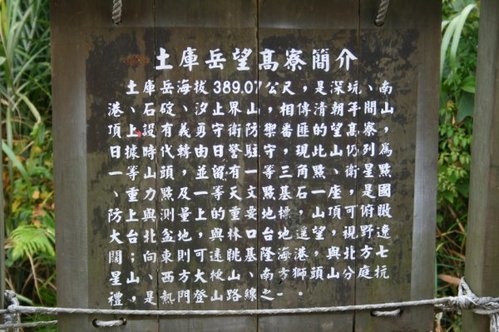 土庫岳望高寮簡介
土庫岳海拔389.07公尺，是深坑、南
港、石碇、汐止界山，相傳清朝年間山
頂上設有義勇守衛防禦番匪的望高寮，
日據時代轉由日警駐守，現此山仍列為
一等山頭，並留有一等三角點、衛星點
、重力點及一等天文點基石一座，是國
防上與測量上的重要地標，山頂可俯瞰
大台北盆地，與林口台地遙望，視野遼
闊；向東則可遠眺基隆海港，與北方七
星山、西方大棟山、南方獅頭山分庭抗
禮，是熱門登山路線之一。